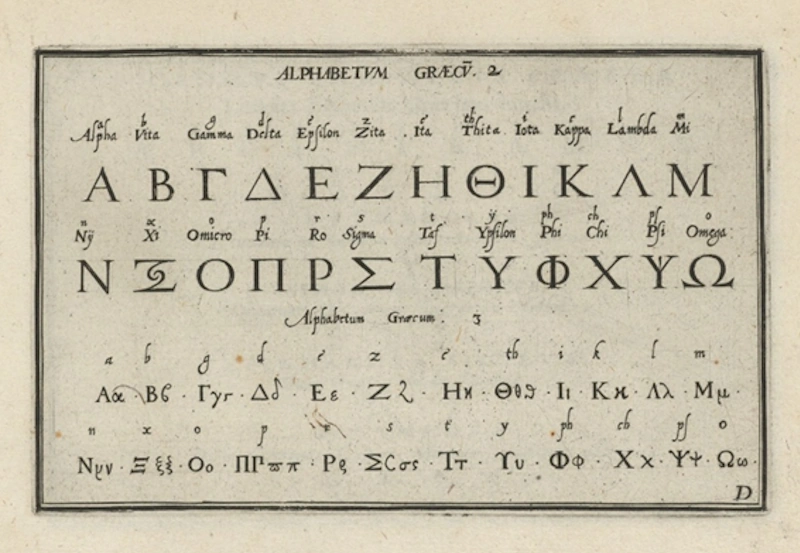 ALPHABETVM GRÆCV̄. 2
a b g d e z e th i c l m
Alpha Vita Gamma Delta Epſilon Zita Ita Thita Iota Kappa Lambda Mi
Α Β Γ Δ Ε Ζ Η Θ Ι Κ Λ Μ
n x o p r s t ÿ ph ch pſ o
Nÿ Xi Omicro Pi Ro Sigma Taf Ypſilon Phi Chi Pſi Omega
Ν Ξ Ο Π Ρ Σ Τ Υ Φ Χ Ψ Ω
Alphabetum Græcum. 3
a b g d e z e th i k l m
Αα · Βϐ · Γγг · Δδ · Εε · Ζζ · Ηη · Θθϑ · Ιι · Κκ · Λλ · Μμ ·
n x o p r s t y ph ch pſ o
Νν · Ξξξ · Οο · ΠΓϖπ · Ρρ · ΣCσς · Ττ · Υυ · Φφ · Χχ · Ψψ · Ωω ·
D